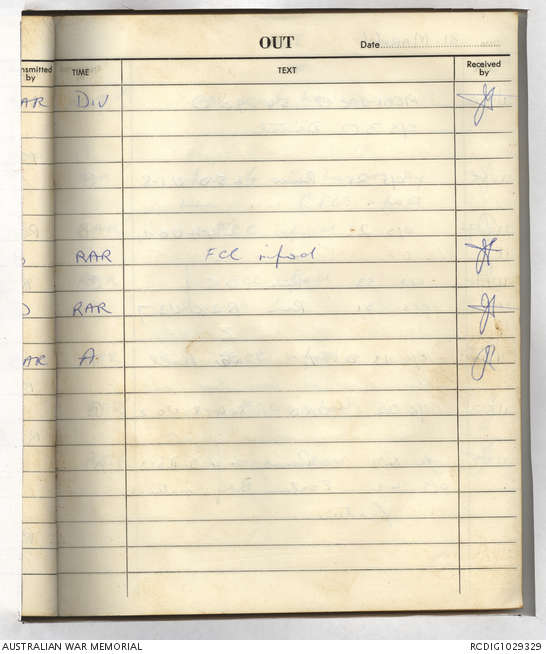 OUT
Date
nsmitted by TIME TEXT Received by
AR DIV JH
RAR FCC infod JH
RAR JH
AR A. JH
AUSTRALIAN WAR MEMORIAL RCDIG1029329